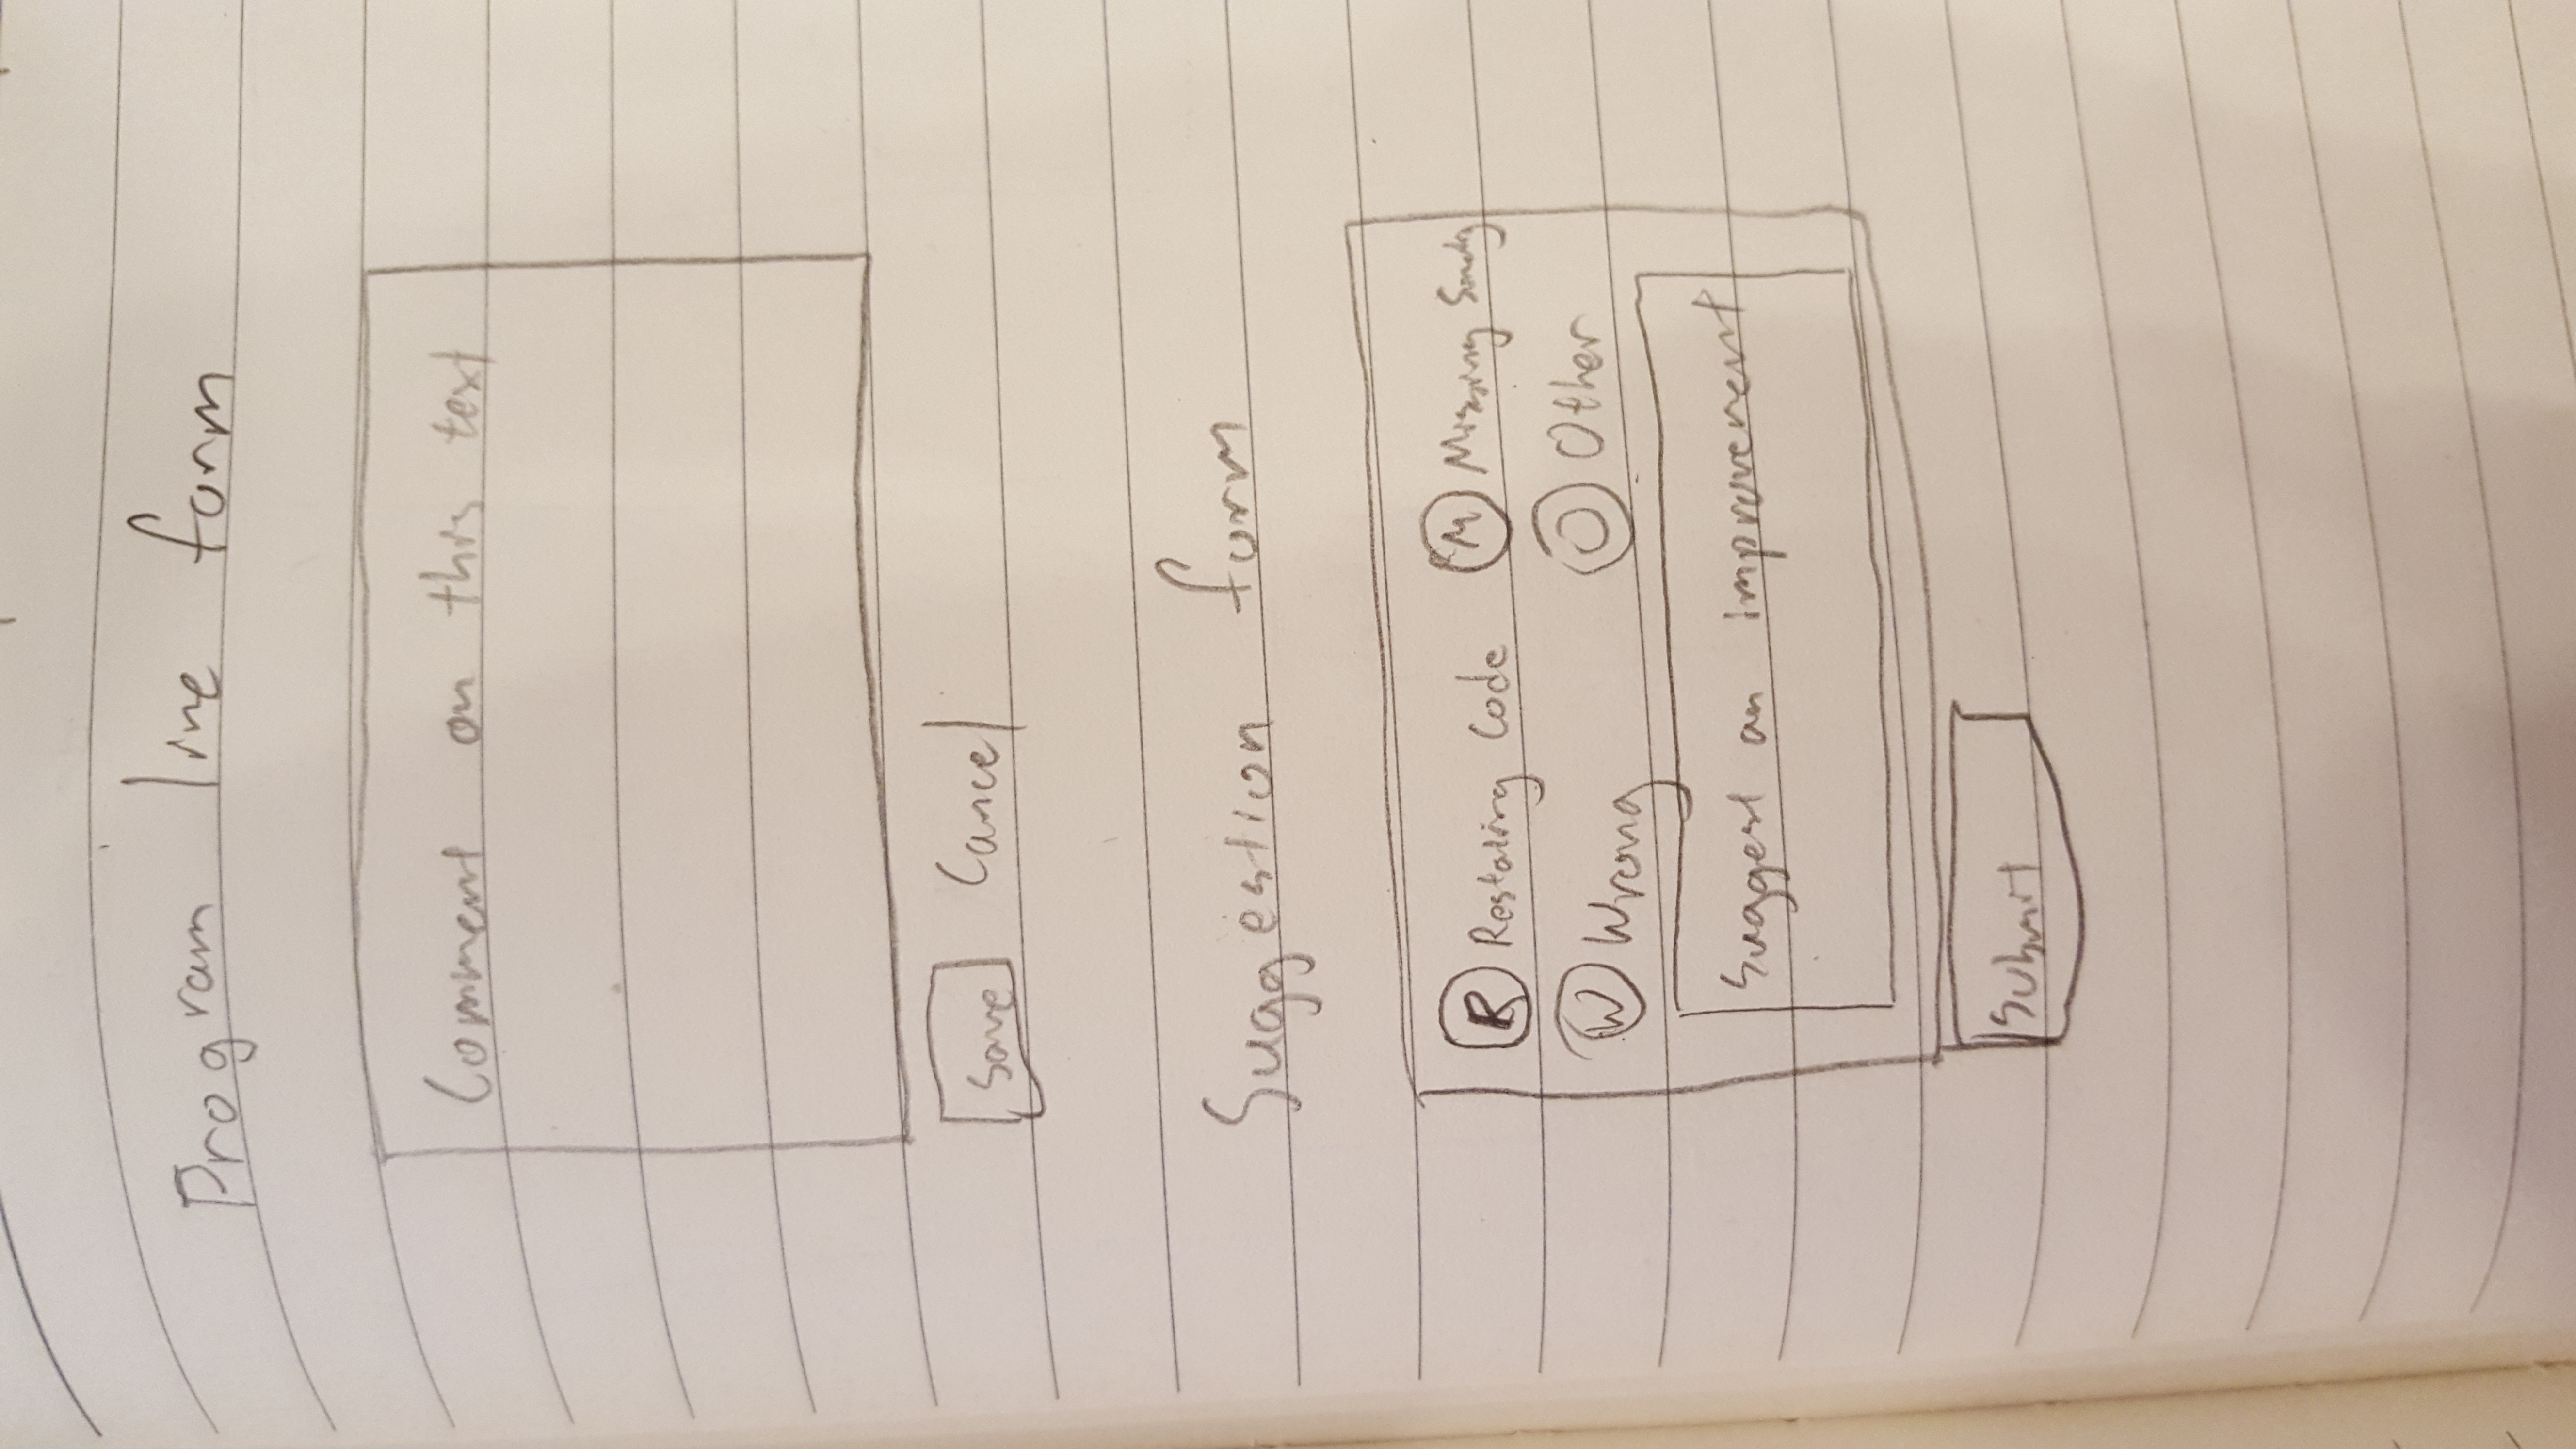 Program line form
Comment on this text
Save Cancel
Suggestion form
R Restating Code M Missing
W Wrong O Other
Suggest an improvement
Submit